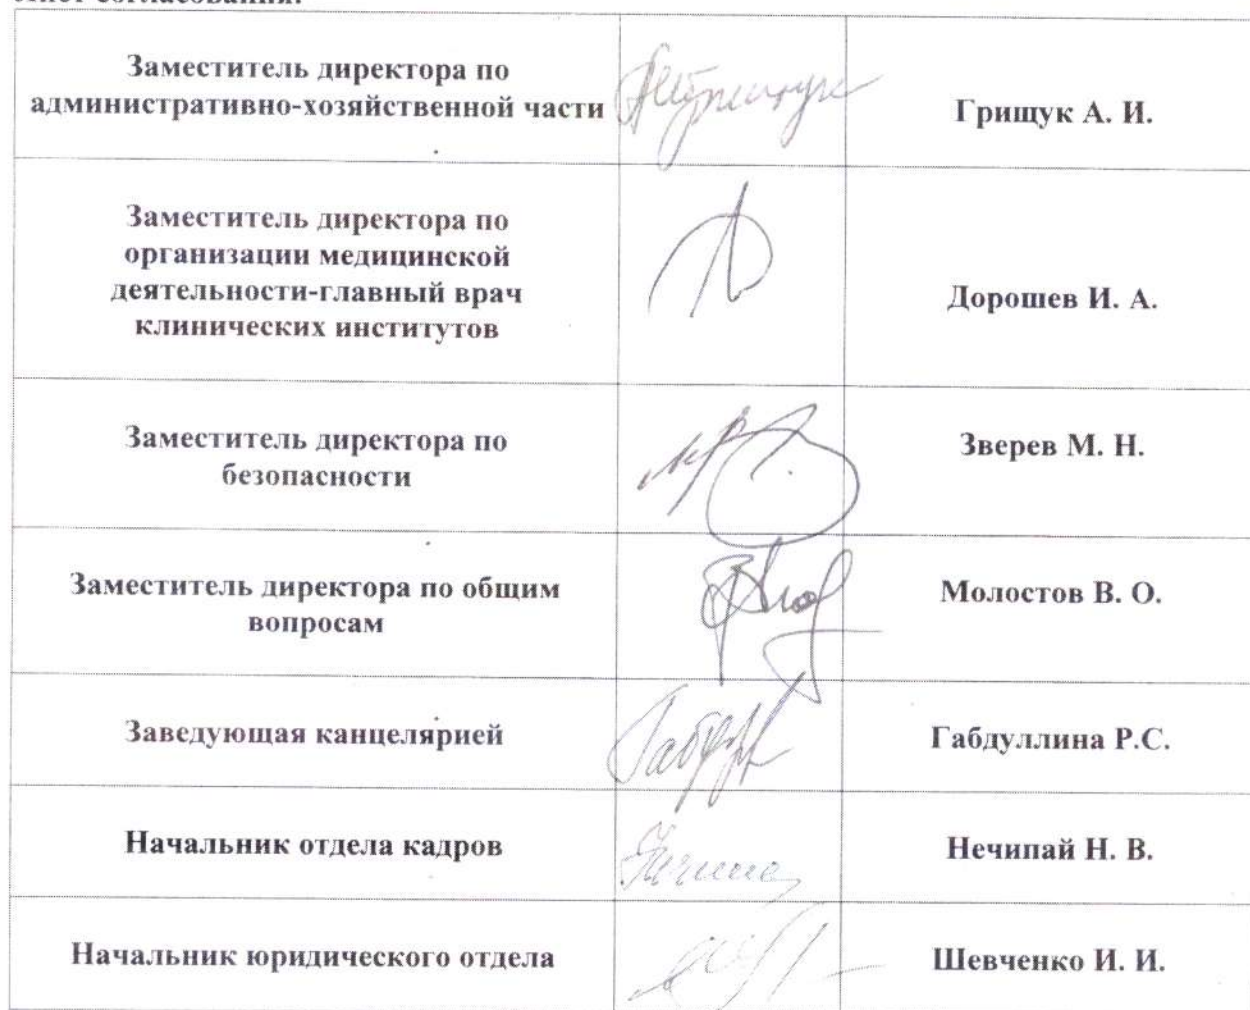 Заместитель директора по
административно-хозяйственной части
Грищук А. И.
Заместитель директора по
организации медицинской
деятельности-главный врач
клинических институтов
Дорошев И. А.
Заместитель директора по
безопасности
Зверев М. Н.
Заместитель директора по общим
вопросам
Молостов В. О.
Заведующая канцелярией
Габдуллина Р.С.
Начальник отдела кадров
Нечипай Н. В.
Начальник юридического отдела
Шевченко И. И.